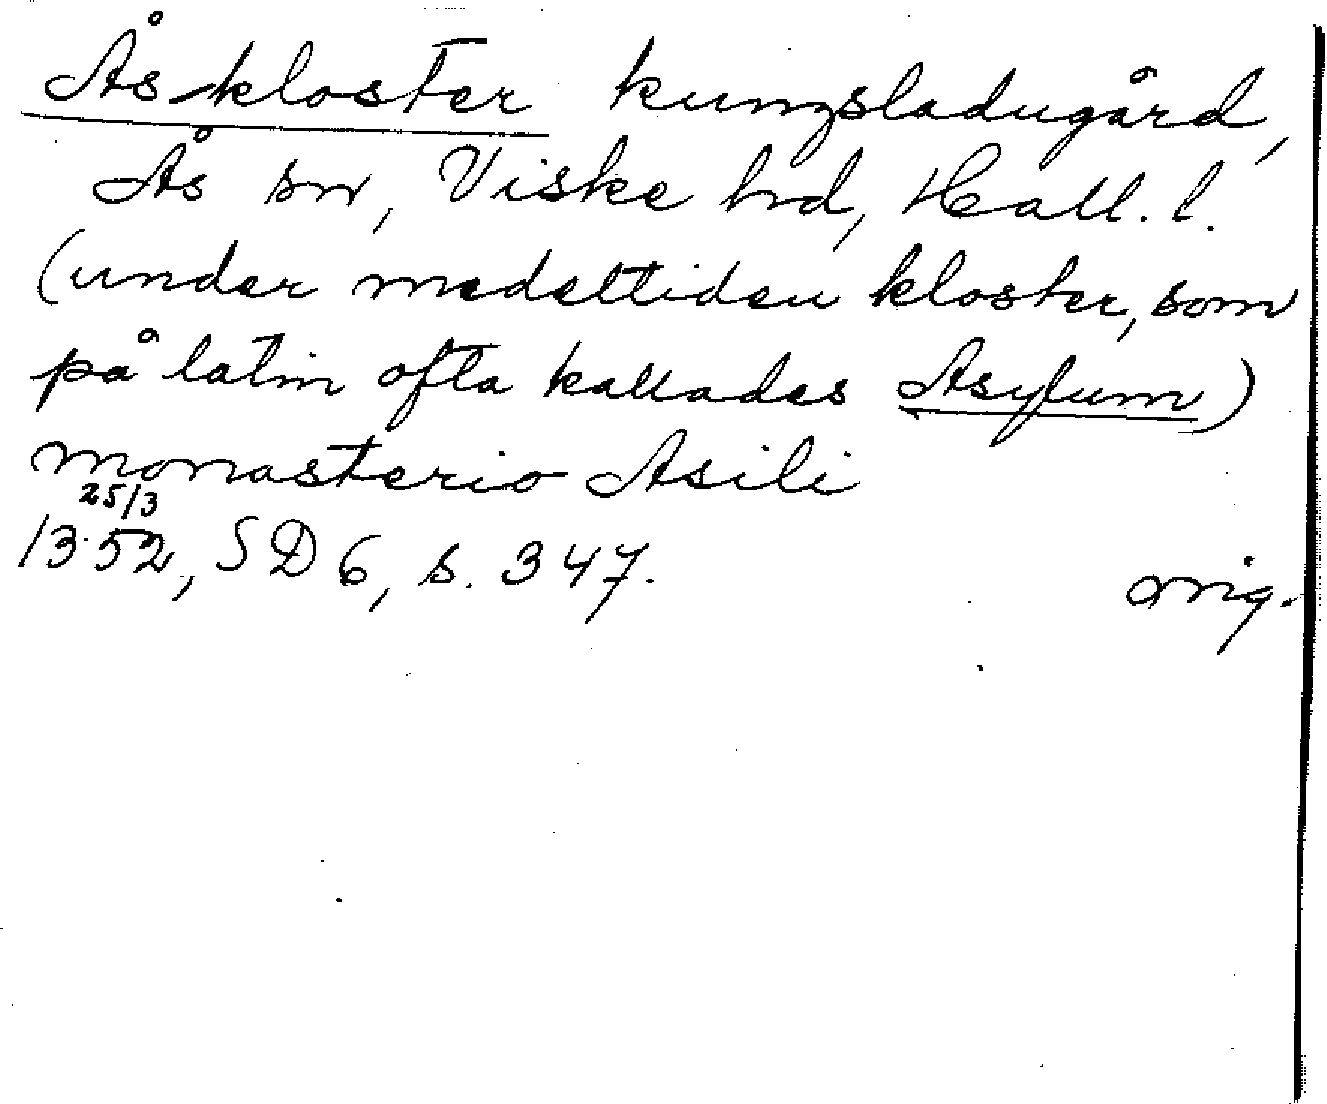 Åskloster kungsladugård,
Ås sn, Viske hd, Hall. l.
(under medeltiden kloster, som
på latin ofta kallades Asylum)
monasterio Asili
25/3
1352, SD 6, s. 347.
orig.